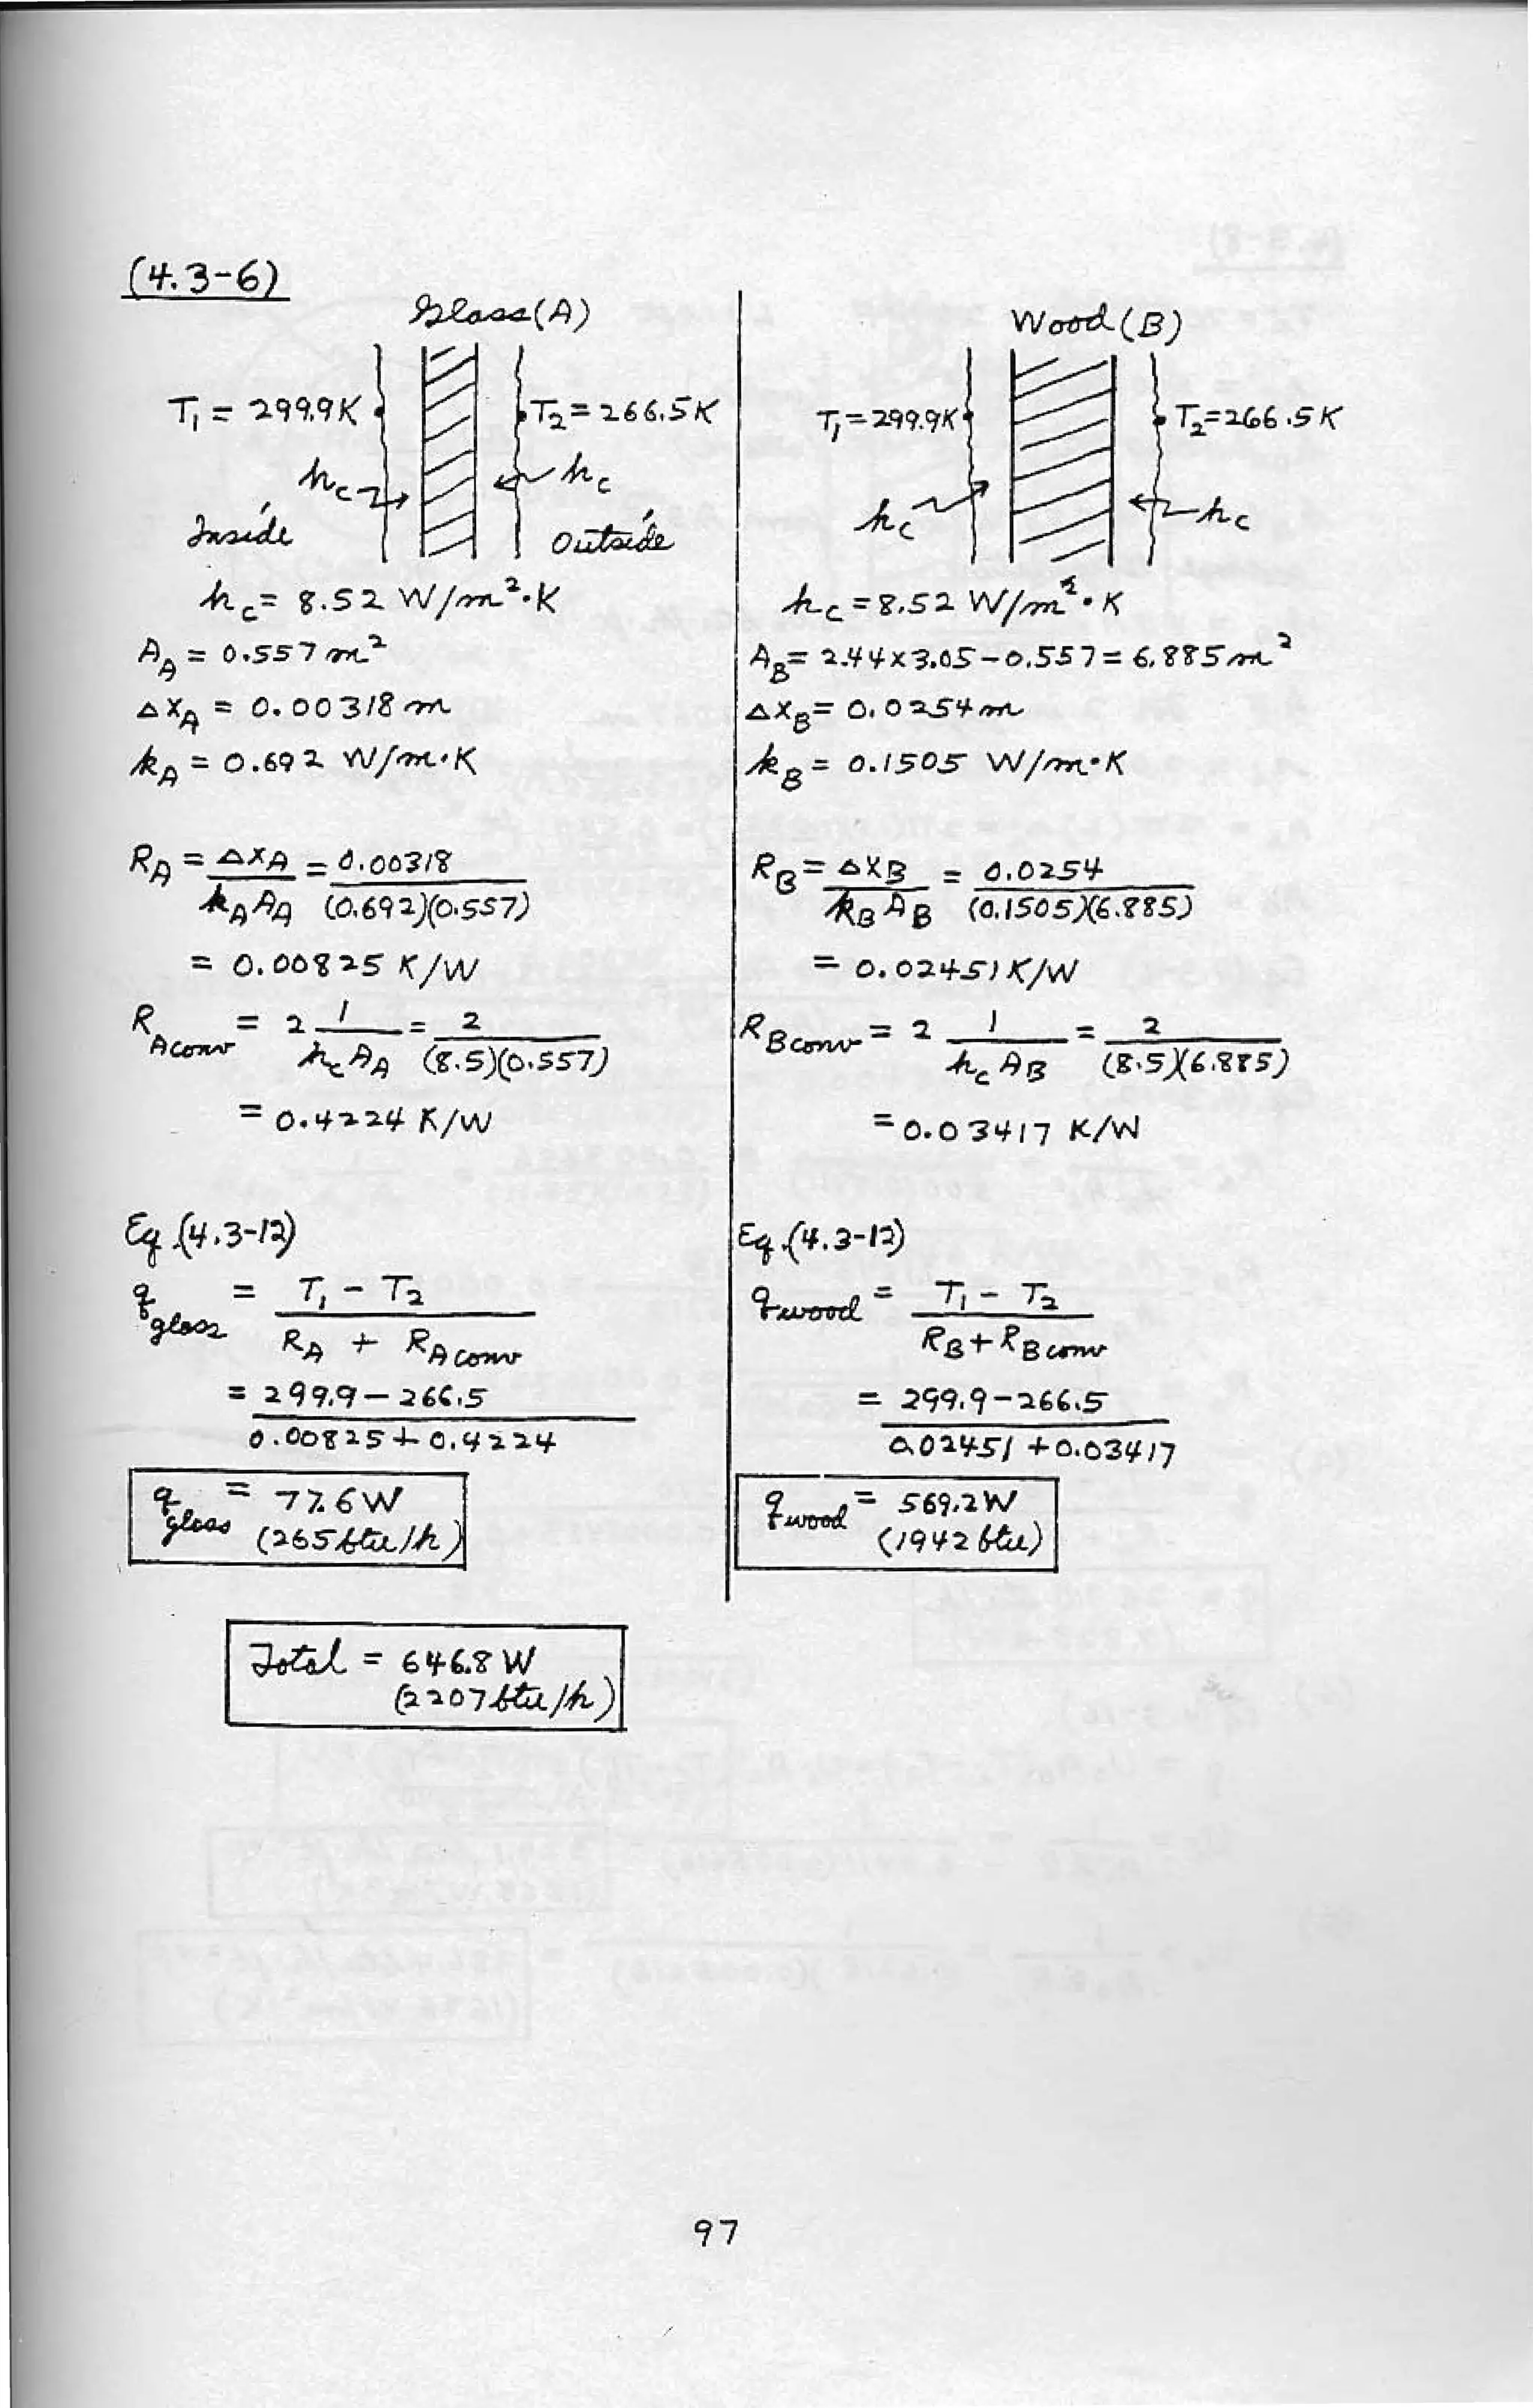 (4.3-6)
Glass (A)
T₁ = 299.9K
T₂ = 266.5K
h_c
h_c
Inside
Outside
h_c = 8.52 W/m²·K
A_A = 0.557 m²
Δx_A = 0.00318 m
k_A = 0.692 W/m·K
R_A = Δx_A / k_A A_A = 0.00318 / (0.692)(0.557)
= 0.00825 K/W
R_A conv = 2 1 / h_c A_A = 2 / (8.5)(0.557)
= 0.4224 K/W
Eq. (4.3-12)
q_glass = T₁ - T₂ / R_A + R_A conv
= 299.9 - 266.5 / 0.00825 + 0.4224
q_glass = 77.6W
(265 btu/h)
Wood (B)
T₁ = 299.9K
T₂ = 266.5K
h_c
h_c
h_c = 8.52 W/m²·K
A_B = 2.44 x 3.05 - 0.557 = 6.885 m²
Δx_B = 0.0254 m
k_B = 0.1505 W/m·K
R_B = Δx_B / k_B A_B = 0.0254 / (0.1505)(6.885)
= 0.02451 K/W
R_B conv = 2 1 / h_c A_B = 2 / (8.5)(6.885)
= 0.03417 K/W
Eq. (4.3-12)
q_wood = T₁ - T₂ / R_B + R_B conv
= 299.9 - 266.5 / 0.02451 + 0.03417
q_wood = 569.2W
(1942 btu)
Total = 646.8 W
(2207 btu/h)
97